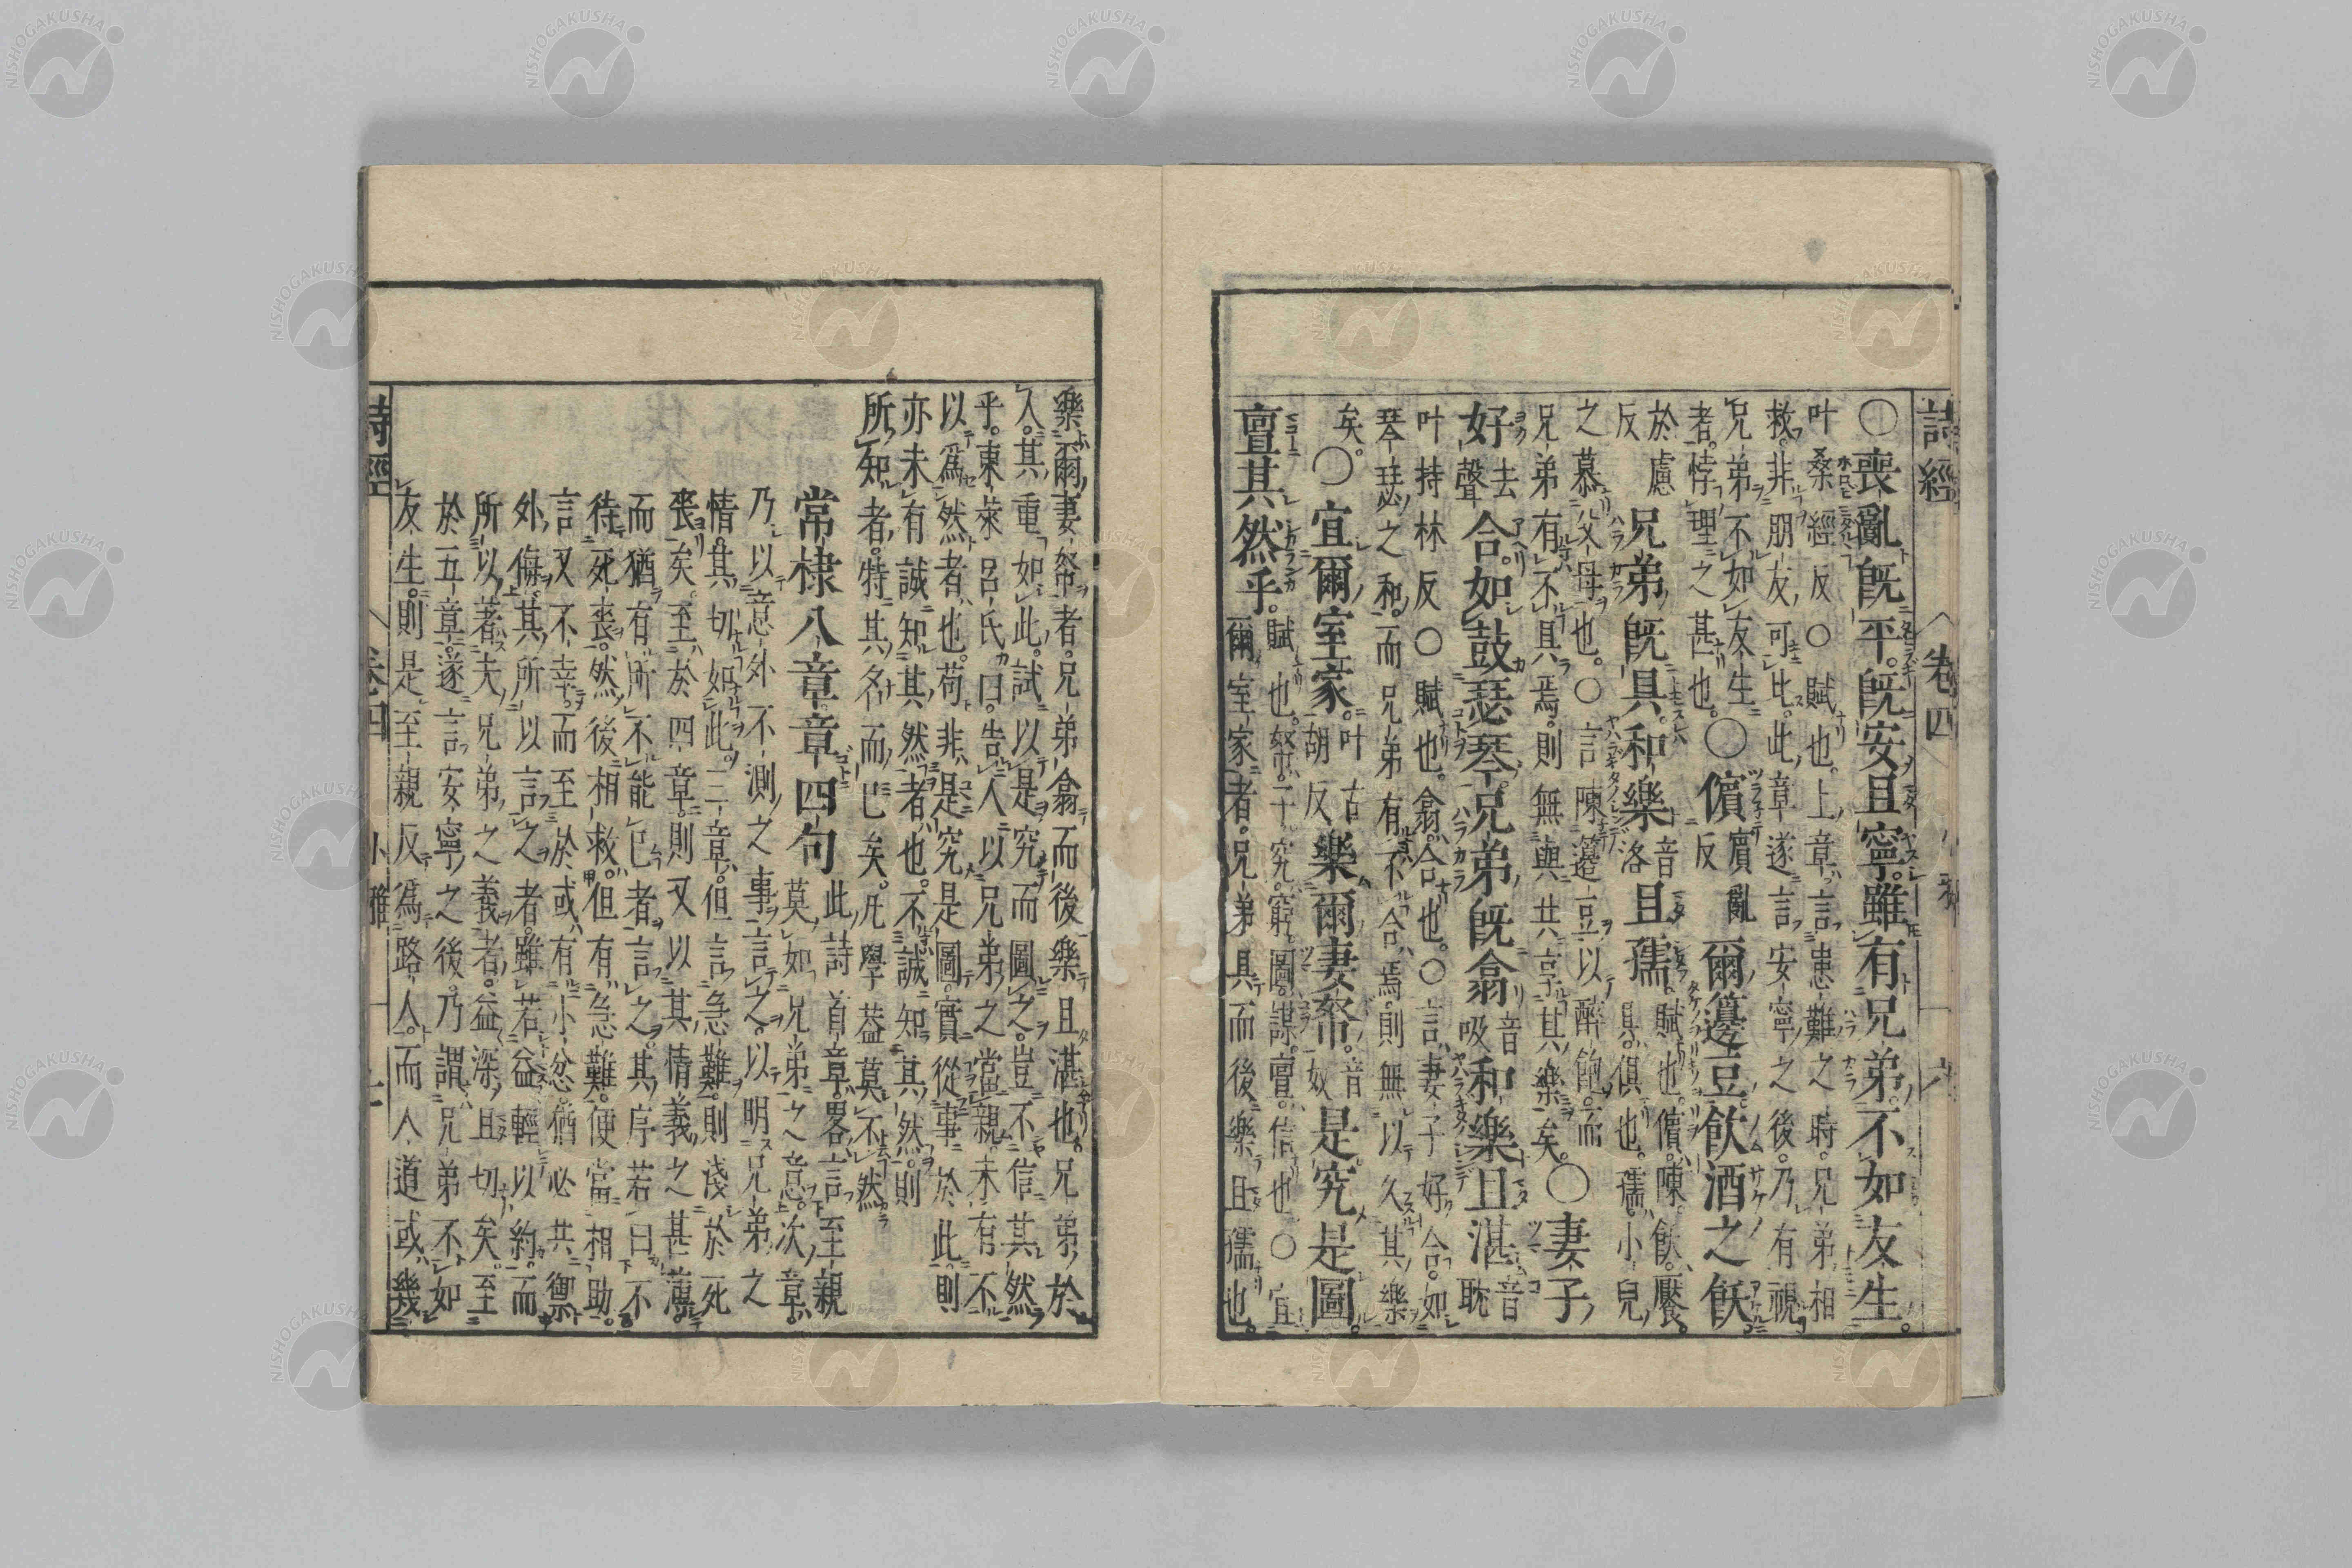 詩經 卷四
〇喪亂既平。既安且寧。雖有兄弟。不如友生。
叶桑經反〇賦也。上章言患難之時。兄弟相
救。非朋友可比。此章遂言安寧之後。乃有視
兄弟不如友生
者。悖理之甚也。〇儐賓亂反爾籩豆飲酒之飫
於慮反兄弟既具。和樂音洛且孺。賦也。儐。陳。飫。饜。
具。俱也。孺。小兒
之慕父母也。〇言陳籩豆以醉飽。而
兄弟有不具焉。則無與共享其樂矣。〇妻子
好去聲合。如鼓瑟琴。兄弟既翕音吸和樂且湛音耽
叶持林反〇賦也。翕。合也。〇言妻子好合。如
琴瑟之和。而兄弟有不合焉。則無以久其樂
矣。〇宜爾室家。叶古胡反樂爾妻帑。音奴是究是圖。
亶其然乎。賦也。帑。子。究。窮。圖。謀。亶。信也。〇宜
爾室家者。兄弟具而後樂且孺也。
樂爾妻帑者。兄弟翕而後樂且湛也。兄弟於
人。其重如此。試以是究而圖之。豈不信其然
乎。東萊呂氏曰。告人以兄弟之當親。未有不
以爲然者也。苟非是究是圖。實從事於此。則
亦未有誠知其然者也。不誠知其然。則
所知者。特其名而已矣。凡學葢莫不然
常棣八章章四句此詩首章畧言至親
莫如兄弟之意。次章
乃以意外不測之事言之。以明兄弟之
情。其切如此。三章。但言急難。則淺於死
喪矣。至於四章。則又以其情義之甚薄。
而猶有所不能已者。言之。其序若曰。不
待死喪。然後相救。但有急難。便當相助。
言又不幸。而至於或有小忿。猶必共禦
外侮。其所以言之者。雖若益輕以約。而
所以著夫兄弟之義者。益深且切矣。至
於五章。遂言安寧之後。乃謂兄弟不如
友生。則是至親反爲路人。而人道或幾
詩經 卷四 小雅